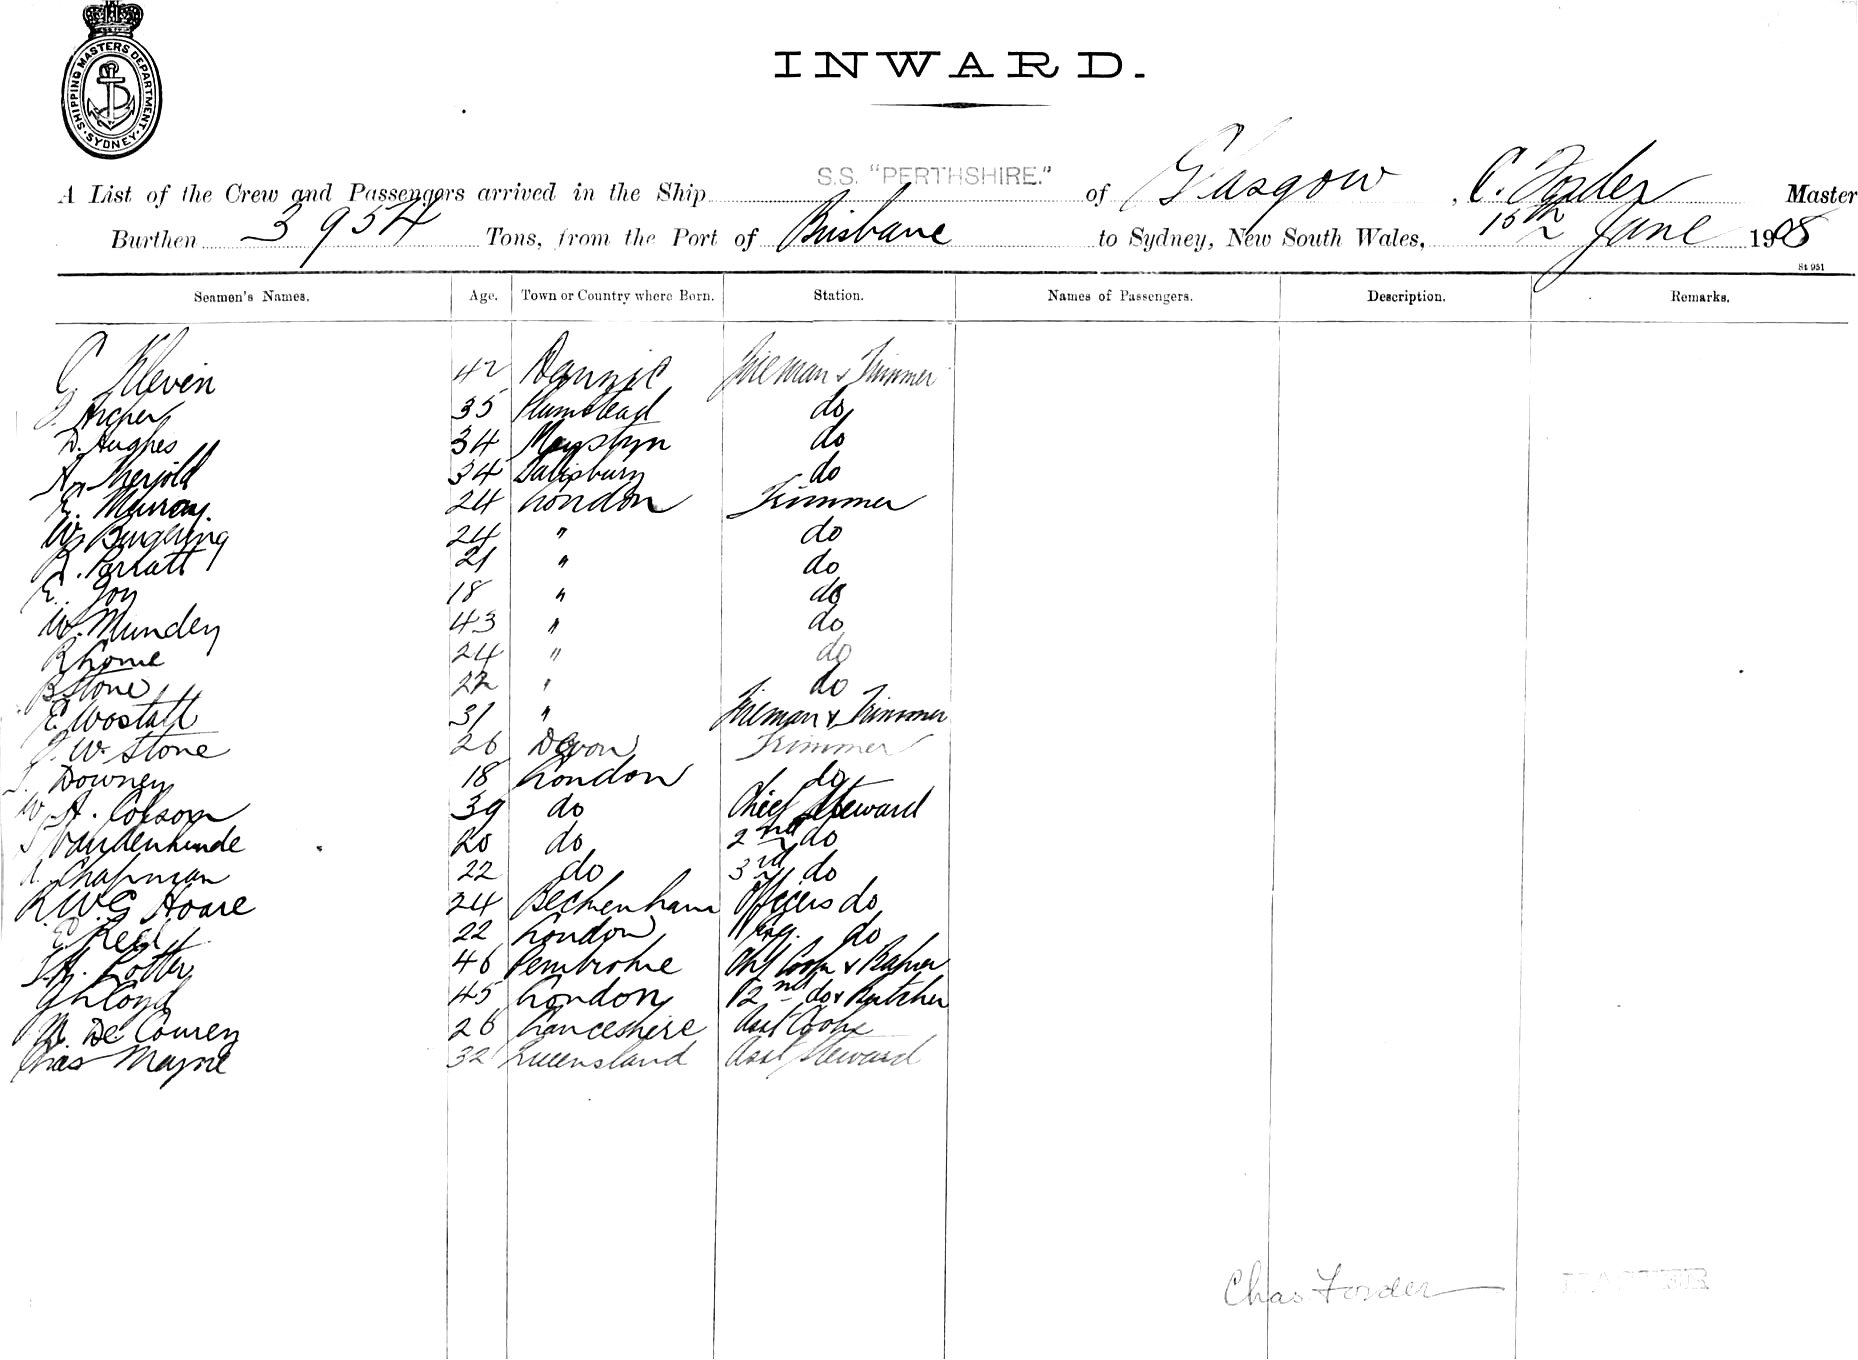 SHIPPING MASTERS DEPARTMENT · SYDNEY ·
INWARD.
A List of the Crew and Passengers arrived in the Ship S.S. "PERTHSHIRE." of Glasgow, C. Forder Master
Burthen 3954 Tons, from the Port of Brisbane to Sydney, New South Wales, 15th June 1908
St 951
Seamen's Names. Age. Town or Country where Born. Station. Names of Passengers. Description. Remarks.
C Kleven 42 Fireman & Trimmer
Archer 35 Plumstead do
D. Hughes 34 Mostyn do
34 Salisbury do
E. Murray. 24 London Trimmer
W. 24 " do
21 " do
E. Joy 18 " do
W. Munday 43 " do
R Lome 24 " do
B Stone 22 " do
E Wostatt 31 " Fireman & Trimmer
J. W. Stone 26 Devon Trimmer
J. Downey 18 London do
W. A. Colson 39 do Chief Steward
20 do 2nd do
A. Chapman 22 do 3rd do
R. W. G Hoare 24 Beckenham Officers do
E Reed 22 London Eng. do
46 Pembroke Chf Cook & Baker
J Lloyd 45 London 2nd do & Butcher
De Courcy 26 Lanceshire Asst Cook
Chas Mayne 32 Queensland Asst Steward
Chas Forder MASTER